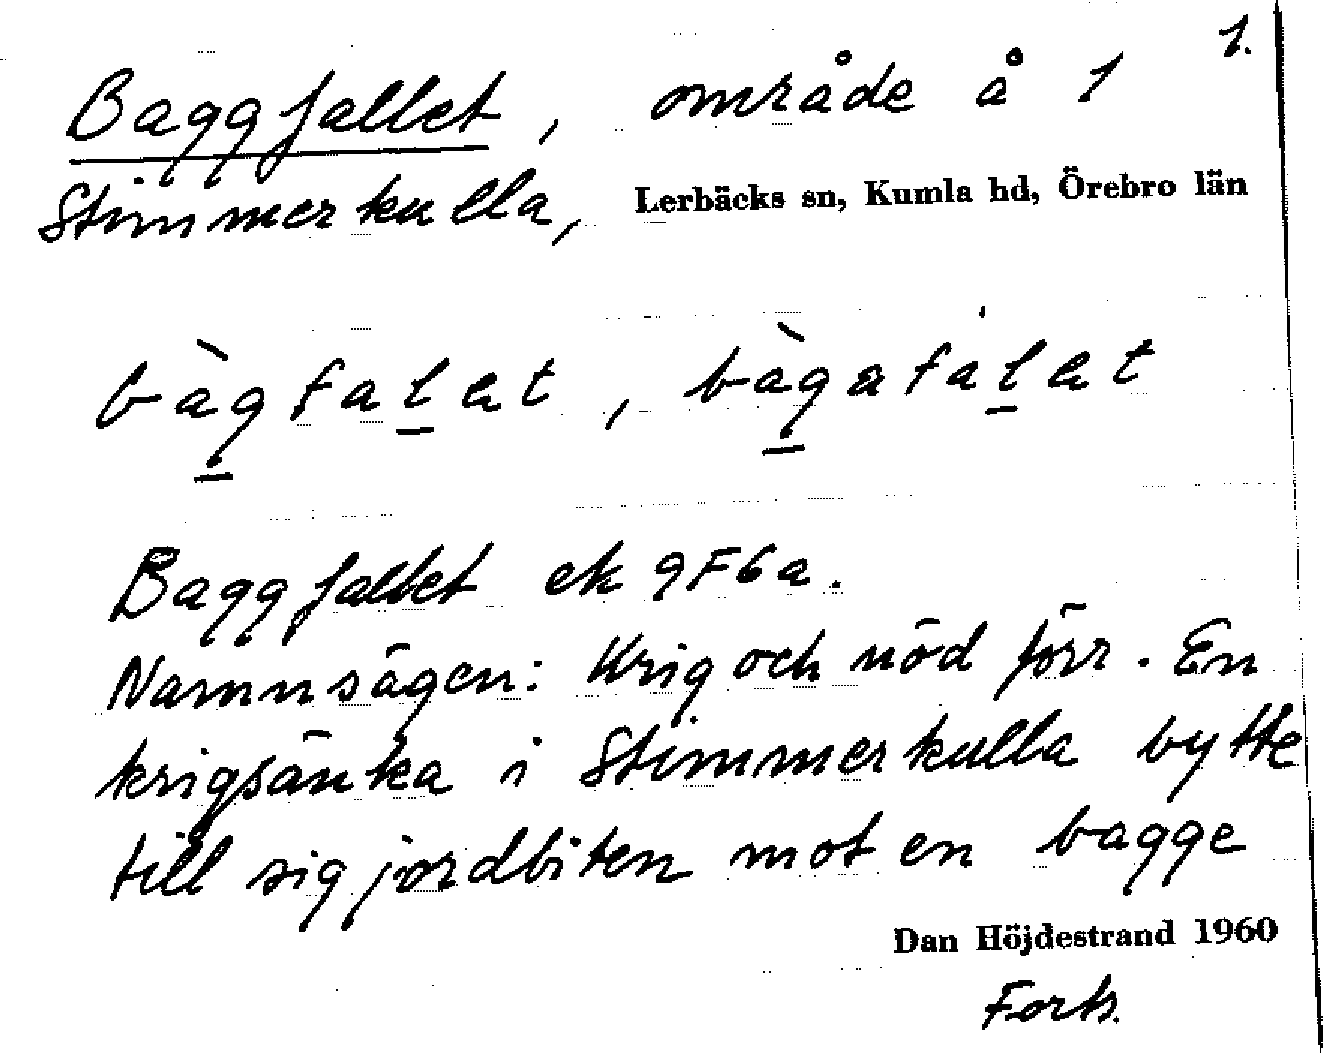 1.
Baggfallet, område å 1
Stimmerkulla, Lerbäcks sn, Kumla hd, Örebro län
bàgfalet, bàgafalet
Baggfallet ek 9F6a.
Namnsägen: Krig och nöd förr. En
krigsänka i Stimmerkulla bytte
till sig jordbiten mot en bagge
Dan Höjdestrand 1960
Forts.